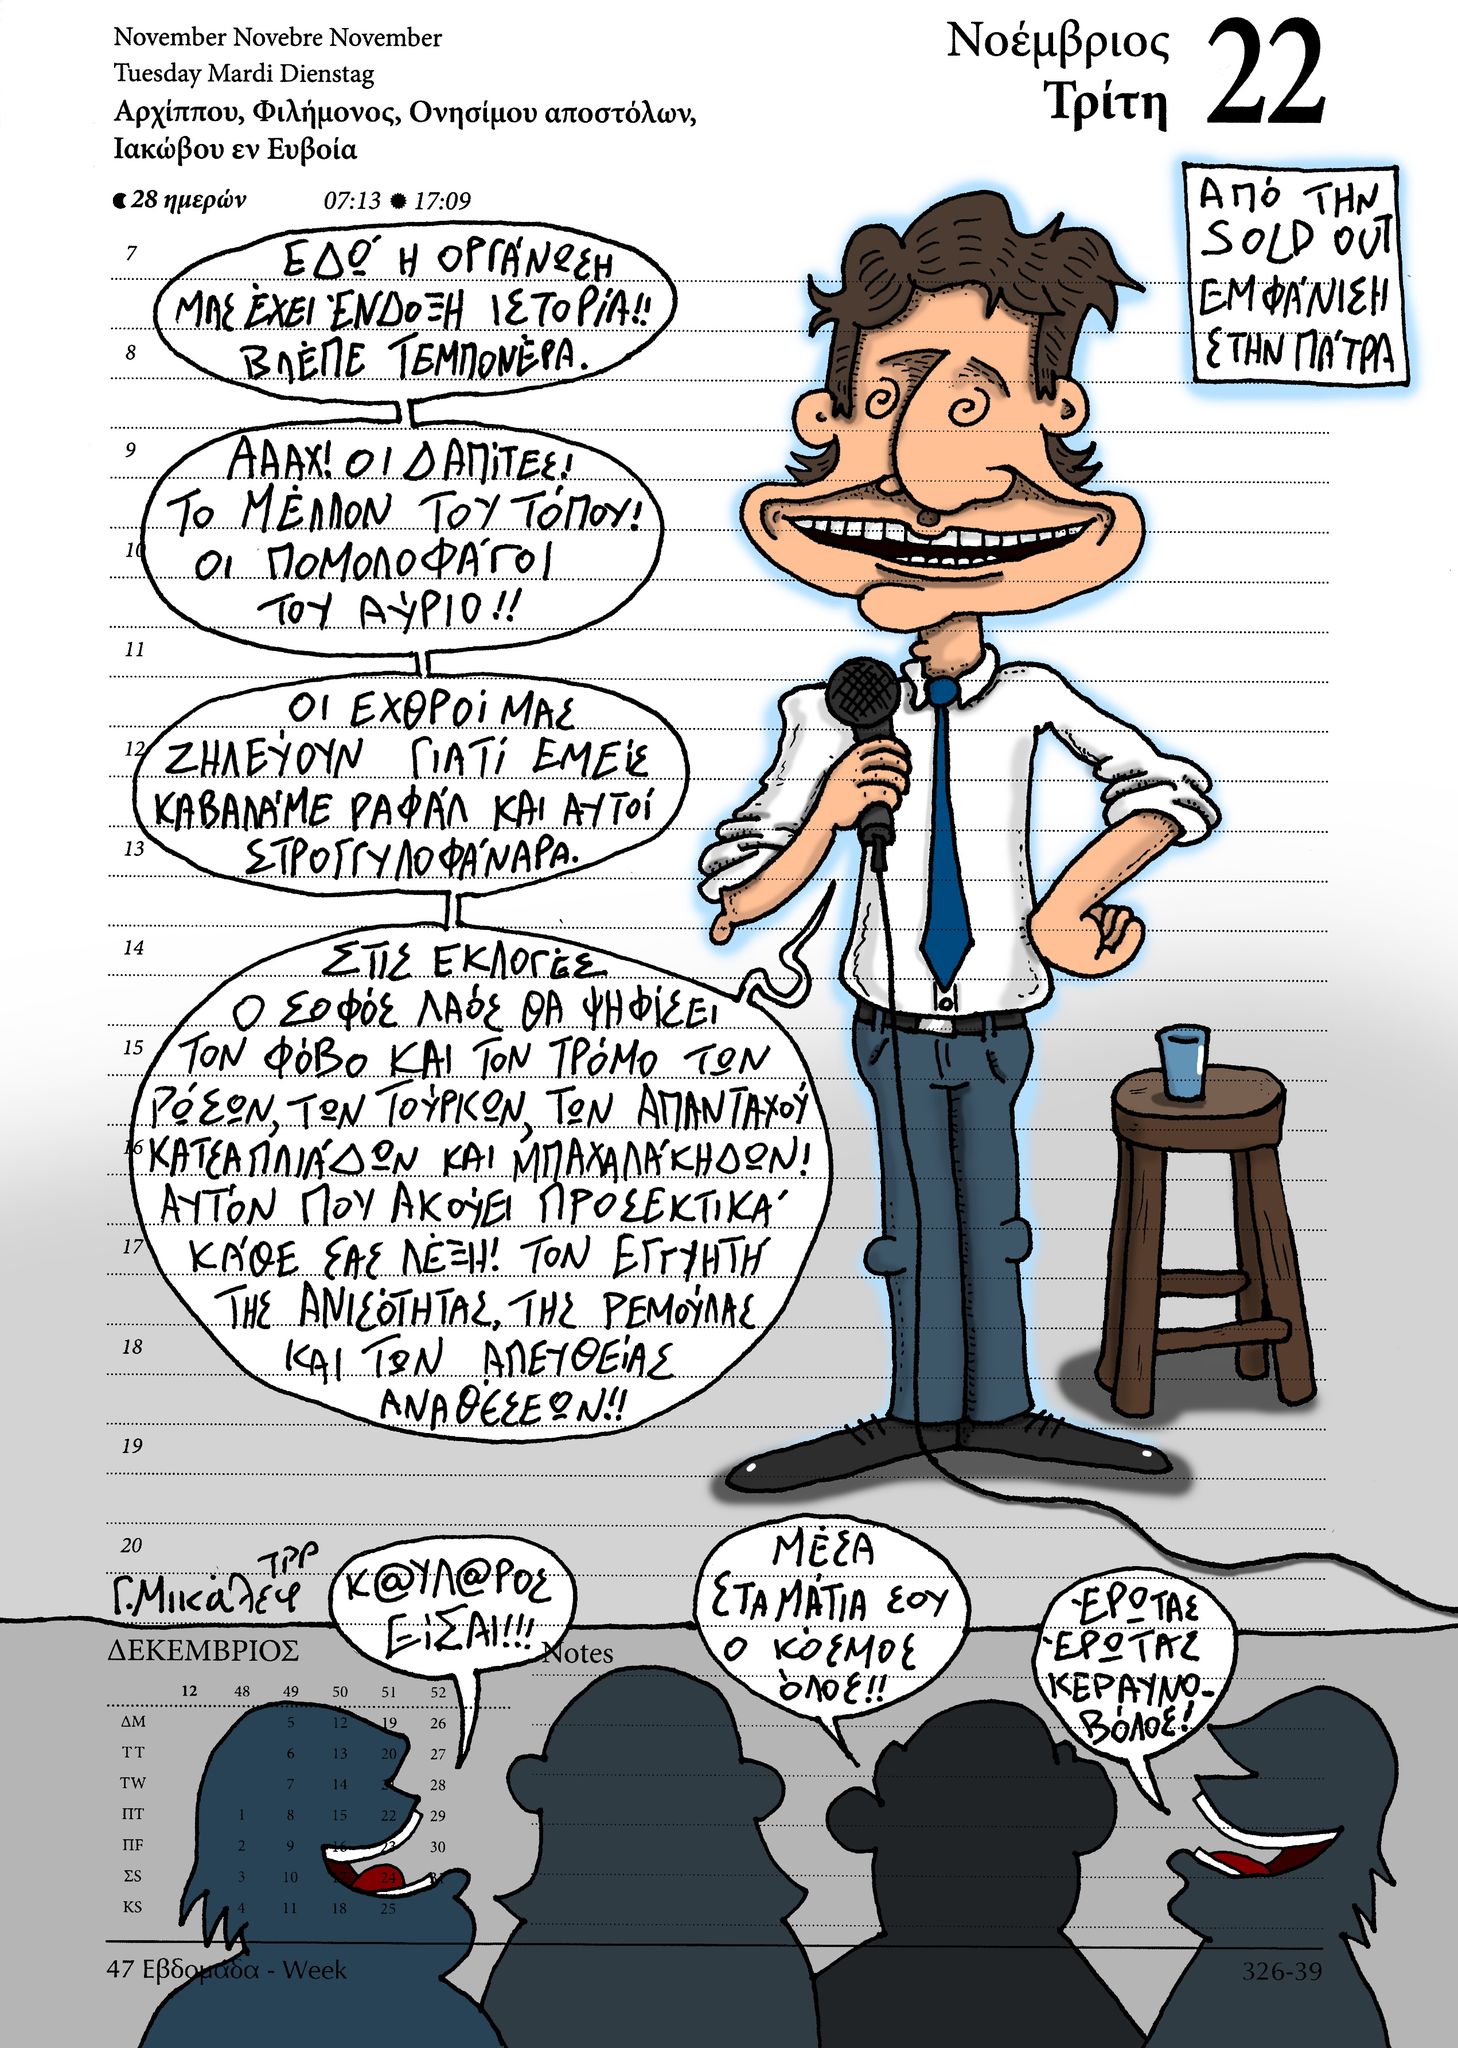 November Novebre November
Tuesday Mardi Dienstag
Αρχίππου, Φιλήμονος, Ονησίμου αποστόλων,
Ιακώβου εν Ευβοία
28 ημερών 07:13 17:09
Νοέμβριος
Τρίτη
22
ΑΠΌ ΤΗΝ
SOLD OUT
ΕΜΦΆΝΙΣΗ
ΣΤΗΝ ΠΆΤΡΑ
7
8
9
10
11
12
13
14
15
16
17
18
19
20
ΕΔΏ Η ΟΡΓΆΝΩΣΗ
ΜΑΣ ΈΧΕΙ ΈΝΔΟΞΗ ΙΣΤΟΡΊΑ!!
ΒΛΈΠΕ ΤΕΜΠΟΝΈΡΑ.
ΑΑΑΧ! ΟΙ ΔΑΠΊΤΕΣ!
ΤΟ ΜΈΛΛΟΝ ΤΟΥ ΤΌΠΟΥ!
ΟΙ ΠΟΜΟΛΟΦΆΓΟΙ
ΤΟΥ ΑΎΡΙΟ!!
ΟΙ ΕΧΘΡΟΊ ΜΑΣ
ΖΗΛΕΎΟΥΝ ΓΙΑΤΊ ΕΜΕΊΣ
ΚΑΒΑΛΆΜΕ ΡΑΦΆΛ ΚΑΙ ΑΥΤΟΊ
ΣΤΡΟΓΓΥΛΟΦΆΝΑΡΑ.
ΣΤΙΣ ΕΚΛΟΓΈΣ
Ο ΣΟΦΌΣ ΛΑΌΣ ΘΑ ΨΗΦΊΣΕΙ
ΤΟΝ ΦΌΒΟ ΚΑΙ ΤΟΝ ΤΡΌΜΟ ΤΩΝ
ΡΏΣΩΝ, ΤΩΝ ΤΟΎΡΚΩΝ, ΤΩΝ ΑΠΑΝΤΑΧΟΎ
ΚΑΤΣΑΠΛΙΆΔΩΝ ΚΑΙ ΜΠΑΧΑΛΆΚΗΔΩΝ!
ΑΥΤΌΝ ΠΟΥ ΑΚΟΎΕΙ ΠΡΟΣΕΚΤΙΚΆ
ΚΆΘΕ ΣΑΣ ΛΈΞΗ! ΤΟΝ ΕΓΓΥΗΤΉ
ΤΗΣ ΑΝΙΣΌΤΗΤΑΣ, ΤΗΣ ΡΕΜΟΎΛΑΣ
ΚΑΙ ΤΩΝ ΑΠΕΥΘΕΊΑΣ
ΑΝΑΘΈΣΕΩΝ!!
ΤΡΡ
Γ. Μικάλεφ
Κ@ΥΛ@ΡΟΣ
ΕΊΣΑΙ!!!
ΜΈΣΑ
ΣΤΑ ΜΆΤΙΑ ΣΟΥ
Ο ΚΌΣΜΟΣ
ΌΛΟΣ!!
ΈΡΩΤΑΣ
ΈΡΩΤΑΣ
ΚΕΡΑΥΝΟ-
ΒΌΛΟΣ!
ΔΕΚΕΜΒΡΙΟΣ
Notes
12 48 49 50 51 52
ΔM 5 12 19 26
TT 6 13 20 27
TW 7 14 28
ΠT 1 8 15 22 29
ΠF 2 9 16 23 30
ΣS 3 10 17 24 31
KS 4 11 18 25
47 Εβδομάδα - Week
326-39